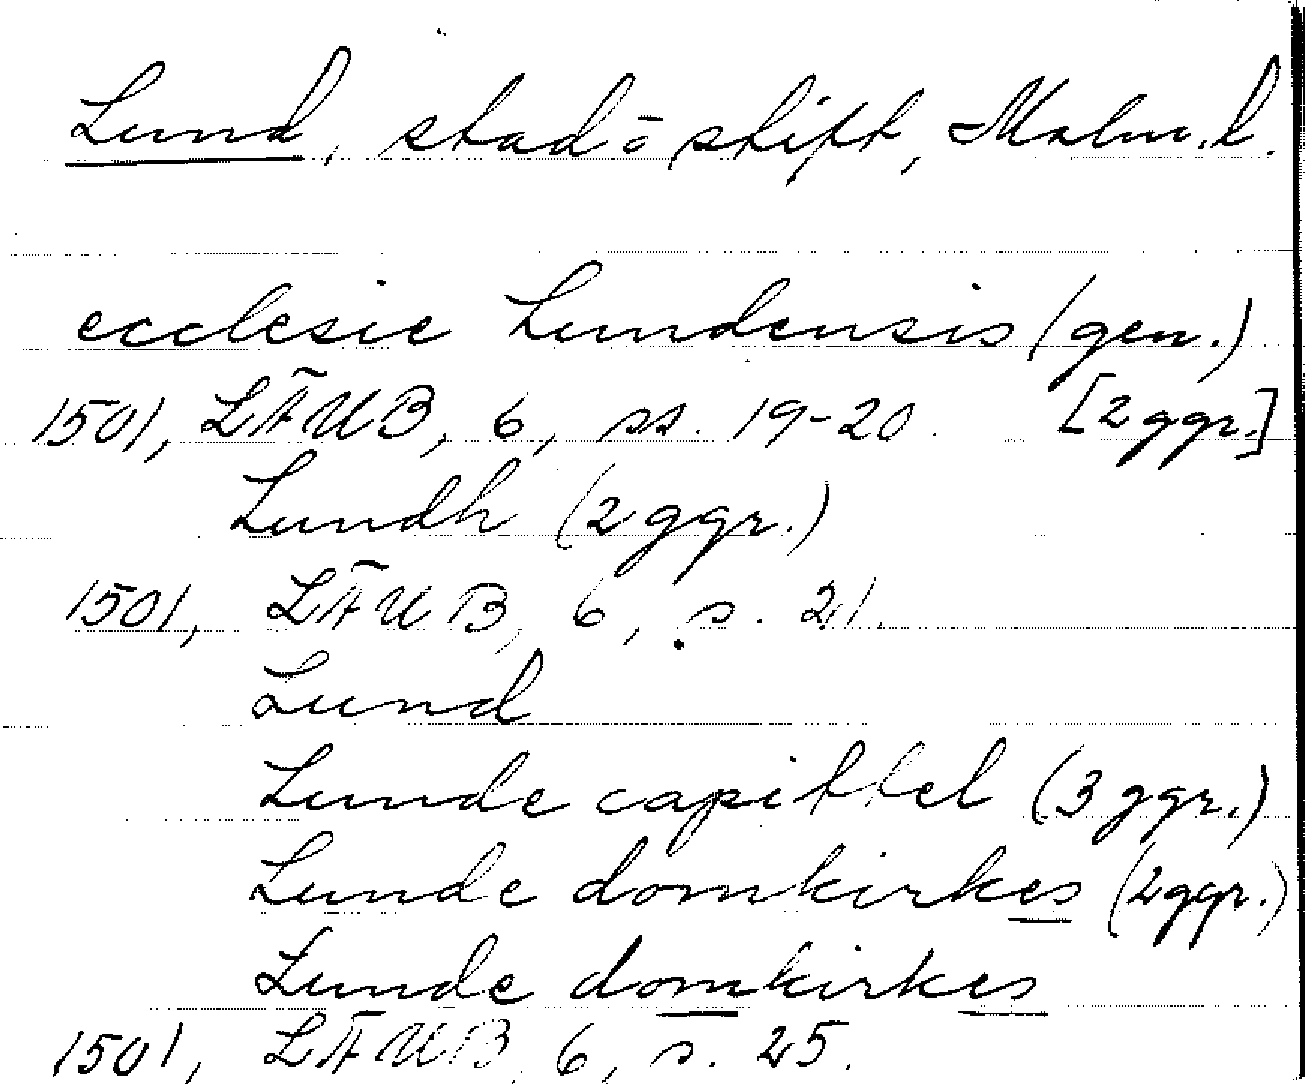 Lund, stad o stift, Malm. l.
ecclesie Lundensis (gen.)
1501, LÄUB, 6, ss. 19-20. [2 ggr.]
Lundh (2 ggr.)
1501, LÄUB, 6, s. 21.
Lund
Lunde capittel (3 ggr.)
Lunde domkirkes (2 ggr.)
Lunde domkirkes
1501, LÄUB, 6, s. 25.